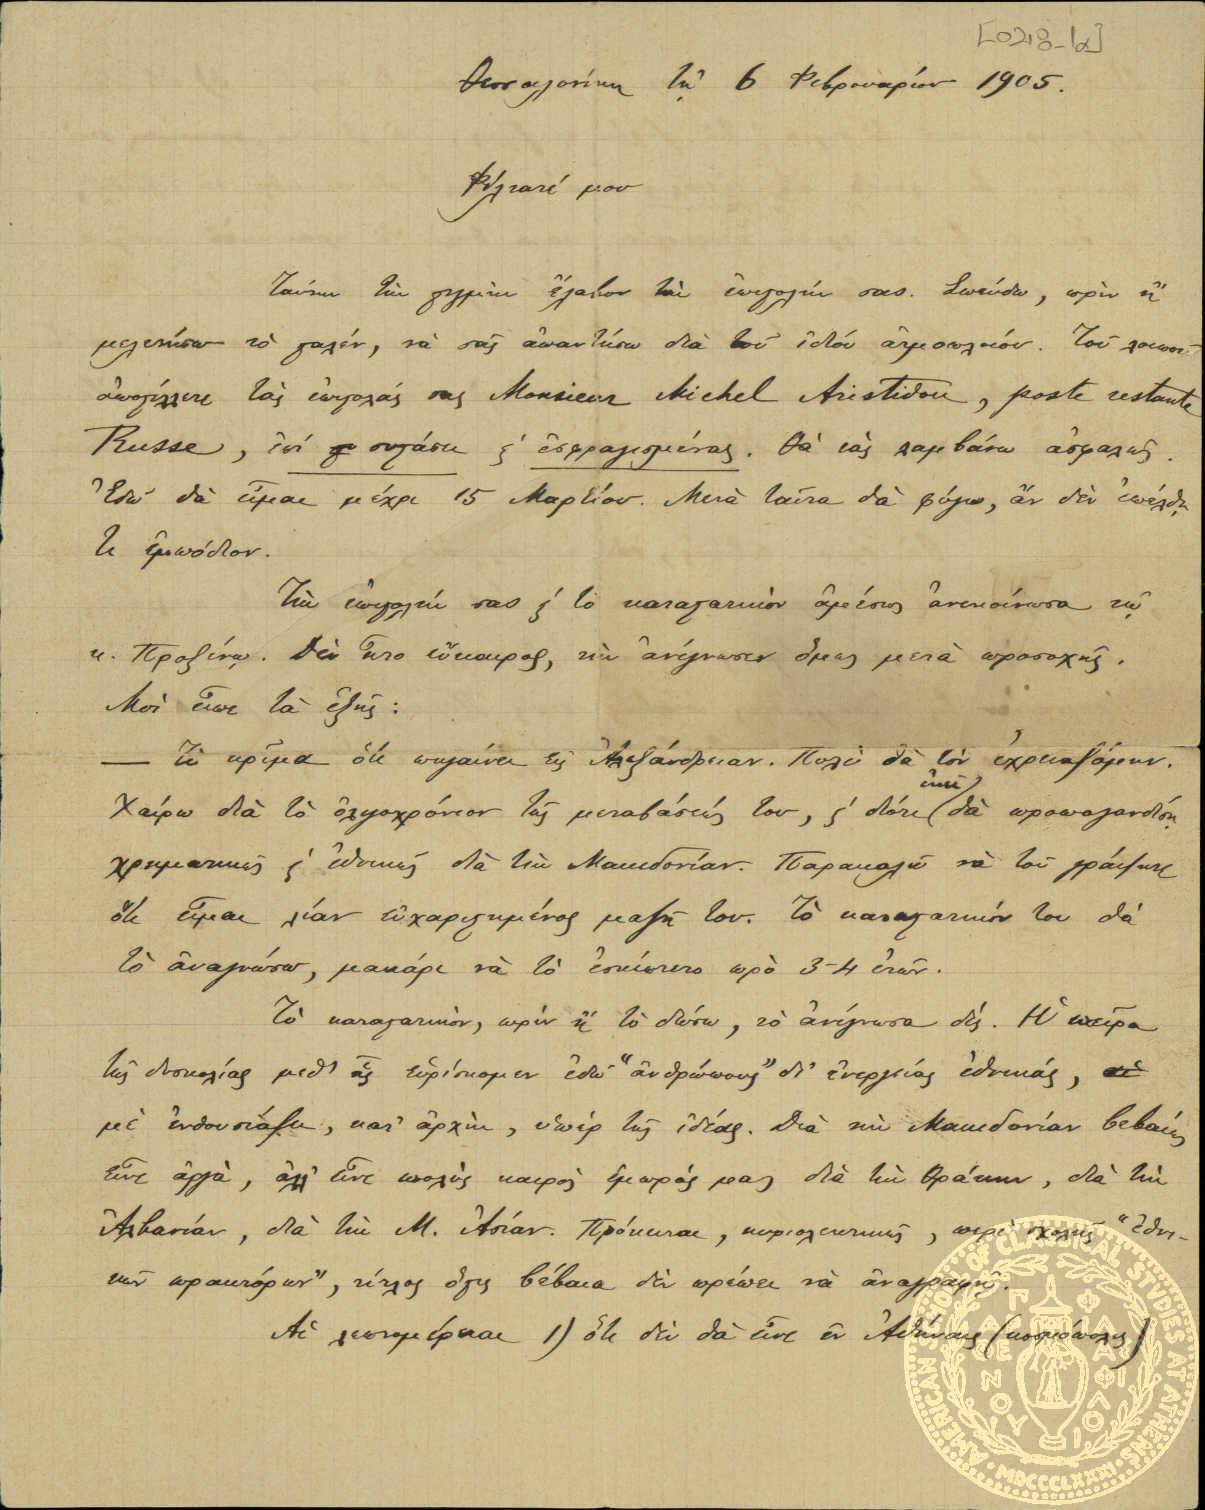 [0218-1α]
Θεσσαλονίκη τῇ 6 Φεβρουαρίου 1905.
Φίλτατέ μου
Ταύτην τὴν στιγμὴν ἔλαβον τὴν ἐπιστολήν σας. Σπεύδω, πρὶν ἢ
μελετήσω τὸ σχέδιον, νὰ σᾶς ἀπαντήσω διὰ τοῦ ἰδίου ἀτμοπλοίου. Τοῦ λοιποῦ
ἀποστέλλετε τὰς ἐπιστολάς σας Monsieur Michel Aristidou, poste restante
Russe, ἐπὶ συστάσει κ' ἐσφραγισμένας. Θὰ τὰς λαμβάνω ἀσφαλῶς.
Ἐδῶ θὰ εἶμαι μέχρι 15 Μαρτίου. Μετὰ ταῦτα θὰ φύγω, ἂν δὲν ἐπέλθῃ
τι ἐμπόδιον.
Τὴν ἐπιστολήν σας κ' τὸ καταστατικὸν ἀμέσως ἀνεκοίνωσα τῷ
κ. Προξένῳ. Δὲν ἦτο εὔκαιρος, τὴν ἀνέγνωσεν ὅμως μετὰ προσοχῆς.
Μοὶ εἶπε τὰ ἑξῆς:
— Τὶ κρῖμα ὅτι πηγαίνει εἰς Ἀλεξάνδρειαν. Πολὺ θὰ τὸν ἐχρειαζόμην.
Χαίρω διὰ τὸ ὀλιγοχρόνιον τῆς μεταβάσεώς του, κ' διότι ἐκεῖ θὰ προπαγανδίσῃ
χρηματικῶς κ' ἐθνικῶς διὰ τὴν Μακεδονίαν. Παρακαλῶ νὰ τοῦ γράψητε
ὅτι εἶμαι λίαν εὐχαριστημένος μαζῆ του. Τὸ καταστατικόν του θὰ
τὸ ἀναγνώσω, μακάρι νὰ τὸ ἐσκέπτετο πρὸ 3-4 ἐτῶν.
Τὸ καταστατικὸν, πρὶν ἢ τὸ δώσω, τὸ ἀνέγνωσα δίς. Ἡ πεῖρα
τῆς δυσκολίας μεθ' ἧς εὑρίσκομεν ἐδῶ "ἀνθρώπους" δι' ἐνεργείας ἐθνικάς,
μὲ ἐνθουσιάζει, κατ' ἀρχὴν, ὑπὲρ τῆς ἰδέας. Διὰ τὴν Μακεδονίαν βεβαίως
εἶνε ἀργὰ, ἀλλ' εἶνε πολὺς καιρὸς ἐμπρός μας διὰ τὴν Θράκην, διὰ τὴν
Ἀλβανίαν, διὰ τὴν Μ. Ἀσίαν. Πρόκειται, κυριολεκτικῶς, περὶ σχολῆς "ἐθνι-
κῶν πρακτόρων", τίτλος ὅστις βέβαια δὲν πρέπει νὰ ἀναγραφῇ.
Αἱ λεπτομέρειαι 1) ὅτι δὲν θὰ εἶνε ἐν Ἀθήναις (κοσμόπολις)
AMERICAN SCHOOL OF CLASSICAL STUDIES AT ATHENS
MDCCCLXXXI
ΠΑΡΘΕΝΟΥ ΦΙΑΛΑΙ ΦΙΛΟΙ